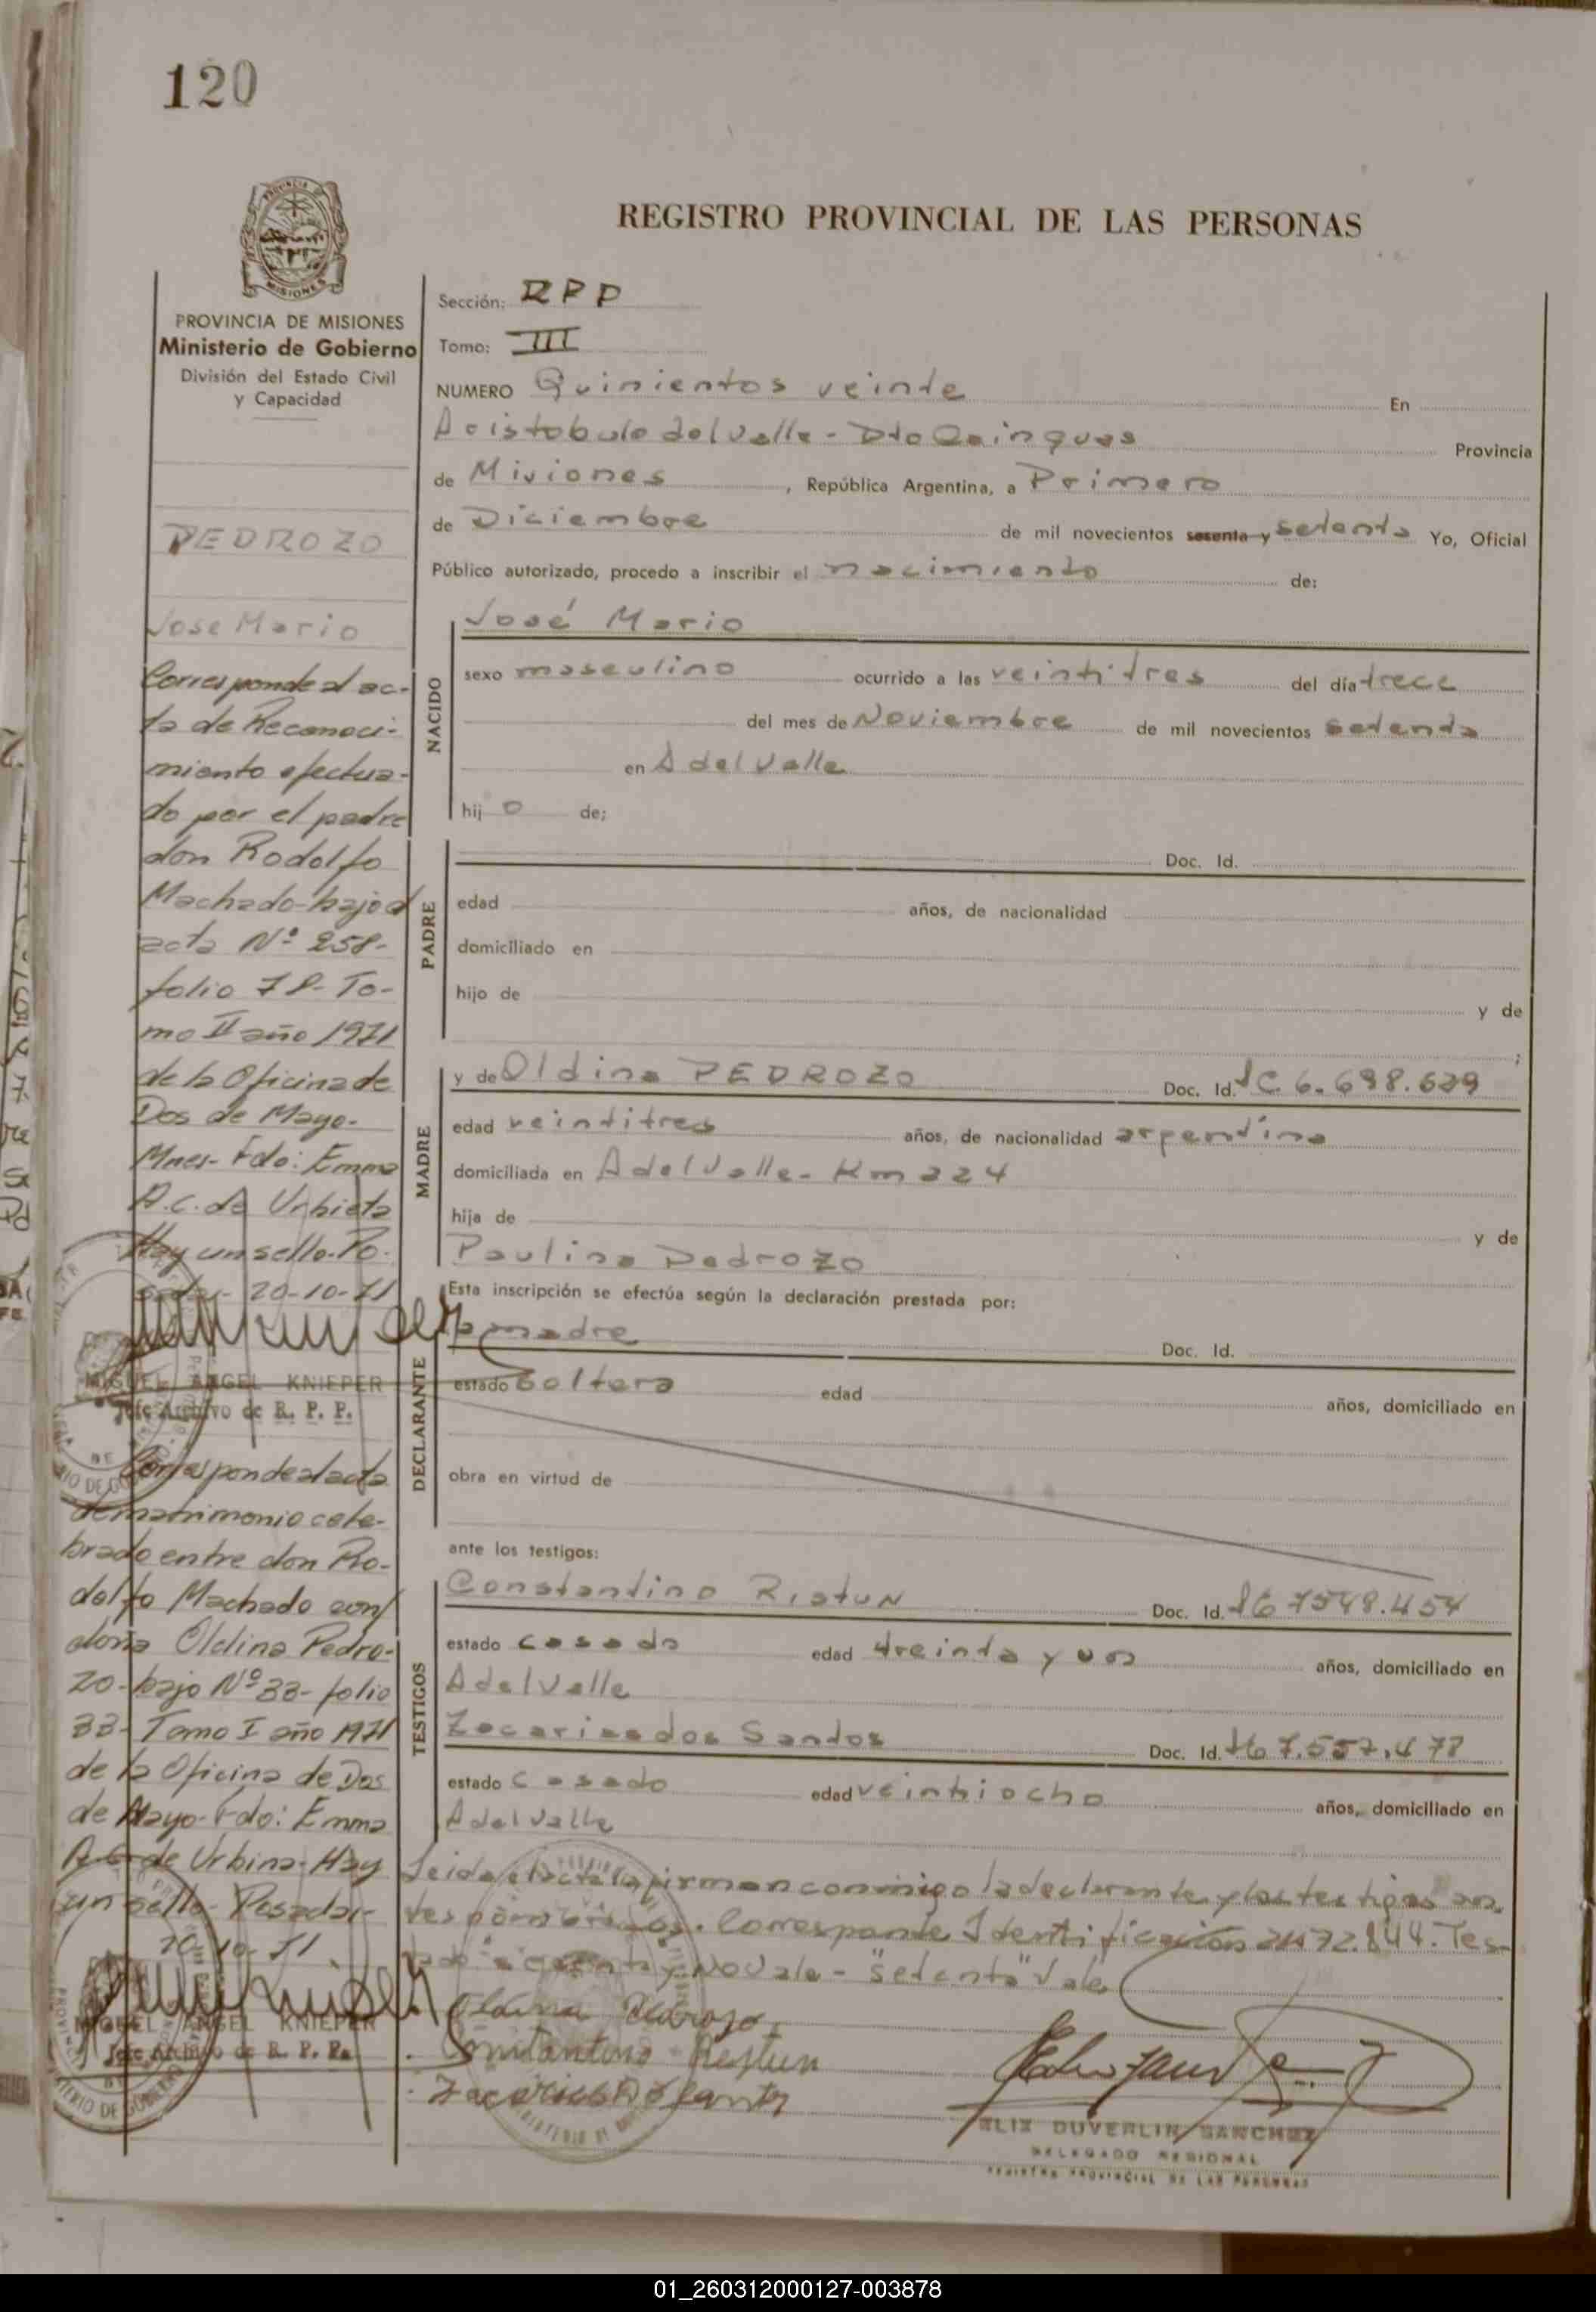 120
REGISTRO PROVINCIAL DE LAS PERSONAS
PROVINCIA DE MISIONES
Ministerio de Gobierno
División del Estado Civil
y Capacidad
PEDROZO
Jose Mario
Corresponde al ac-
ta de Reconoci-
miento efectua-
do por el padre
don Rodolfo
Machado-bajo el
acta Nº 258-
folio 78- To-
mo II año 1971
de la Oficina de
Dos de Mayo-
Mnes- Fdo: Emma
A.C. de Urbieta
Hay un sello. Po-
20-10-71
MIGUEL ANGEL KNIEPER
Jefe Archivo de R. P. P.
Corresponde al acta
de matrimonio cele-
brado entre don Ro-
dolfo Machado con
doña Oldina Pedro-
zo-bajo Nº 33- folio
33- Tomo I año 1971
de la Oficina de Dos
de Mayo- Fdo: Emma
A.C. de Urbina- Hay
un sello- Posadas-
20-10-71
MIGUEL ANGEL KNIEPER
Jefe Archivo de R. P. P.
Sección: RPP
Tomo: III
NUMERO Quinientos veinte En
Aristobulo del Valle - Dto Cainguas Provincia
de Misiones , República Argentina, a Primero
de Diciembre de mil novecientos sesenta y setenta Yo, Oficial
Público autorizado, procedo a inscribir el nacimiento de:
NACIDO
José Mario
sexo masculino ocurrido a las veintitres del día trece
del mes de Noviembre de mil novecientos setenta
en A del Valle
hij o de;
PADRE
Doc. Id.
edad años, de nacionalidad
domiciliado en
hijo de y de
;
MADRE
y de Oldina PEDROZO Doc. Id. LC 6.698.629
edad veintitres años, de nacionalidad argentina
domiciliada en A del Valle - Km 224
hija de y de
Paulina Pedrozo
Esta inscripción se efectúa según la declaración prestada por:
DECLARANTE
la madre Doc. Id.
estado Soltera edad años, domiciliado en
obra en virtud de
ante los testigos:
TESTIGOS
Constantino Ristun Doc. Id. 7548.454
estado casado edad treinta y un años, domiciliado en
A del Valle
Zacarias dos Santos Doc. Id. 7.557.478
estado casado edad veintiocho años, domiciliado en
A del Valle
Leida el acta la firman conmigo la declarante y los testigos an-
tes nombrados. Corresponde Identificación 21472.844. Tes-
tado "sesenta y" No vale - "setenta" Vale
Oldina Pedrozo
Constantino Restun
Zacarias D Santos
ELIX DUVERLIN SANCHEZ
DELEGADO REGIONAL
REGISTRO PROVINCIAL DE LAS PERSONAS
01_260312000127-003878